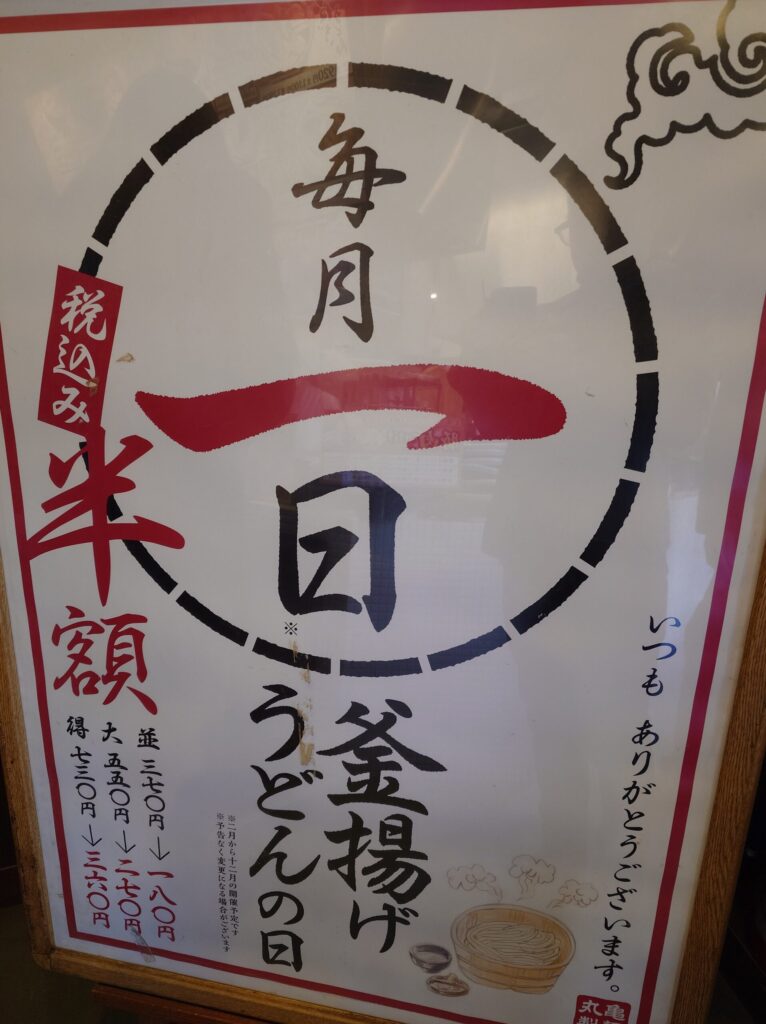 いつも ありがとうございます。
毎月
一
日
※
釜揚げ
うどんの日
※二月から十二月の開催予定です
※予告なく変更になる場合がございます
税込み
半額
並 三七〇円→一八〇円
大 五五〇円→二七〇円
得 七三〇円→三六〇円